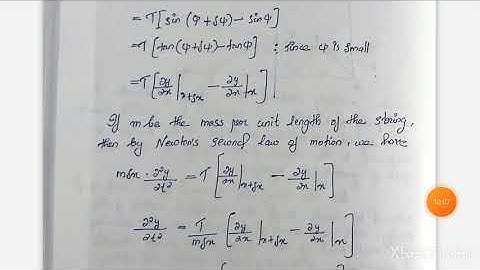 = T[sin (ψ+δψ) - sinψ]
= T[tan(ψ+δψ) - tanψ] ; since ψ is small
= T[∂y/∂x|x+δx - ∂y/∂x|x]
If m be the mass per unit length of the string,
then by Newton's second law of motion, we have
mδx · ∂²y/∂t² = T[∂y/∂x|x+δx - ∂y/∂x|x]
∂²y/∂t² = T/mδx [∂y/∂x|x+δx - ∂y/∂x|x]